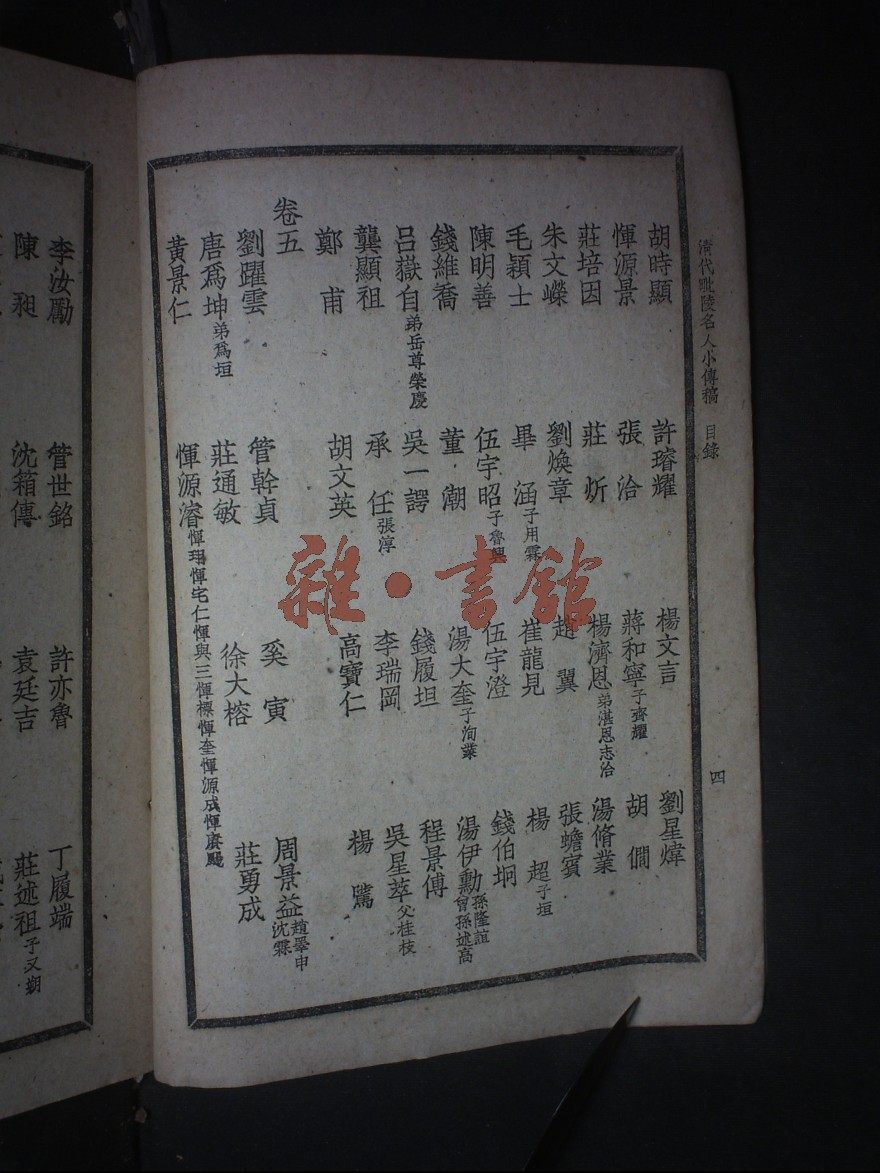 清代毗陵名人小傳稿 目錄 四
胡時顯 許璿耀 楊文言 劉星煒
惲源景 張洽 蔣和寧子齊耀 胡僩
莊培因 莊炘 楊濟恩弟湛恩志治 湯脩業
朱文嶸 劉煥章 趙翼 張蟾賓
毛穎士 畢涵子用霖 崔龍見 楊超子垣
陳明善 伍宇昭子魯興 伍宇澄 錢伯坰
錢維喬 董潮 湯大奎子洵業 湯伊勳孫隆誼曾孫述高
呂嶽自弟岳尊榮慶 吳一諤 錢履坦 程景傅
龔顯祖 承任張淳 李瑞岡 吳星萃父桂枝
鄭甫 胡文英 高寶仁 楊騭
卷五
劉躍雲 管幹貞 奚寅 周景益趙翬申沈霖
唐為坤弟為垣 莊通敏 徐大榕 莊勇成
黃景仁 惲源濬惲珊惲宅仁惲與三惲標惲奎惲源成惲賡颺
李汝勵 管世銘 許亦魯 丁履端
陳昶 沈箱傳 袁廷吉 莊述祖子又朔
雜·書館